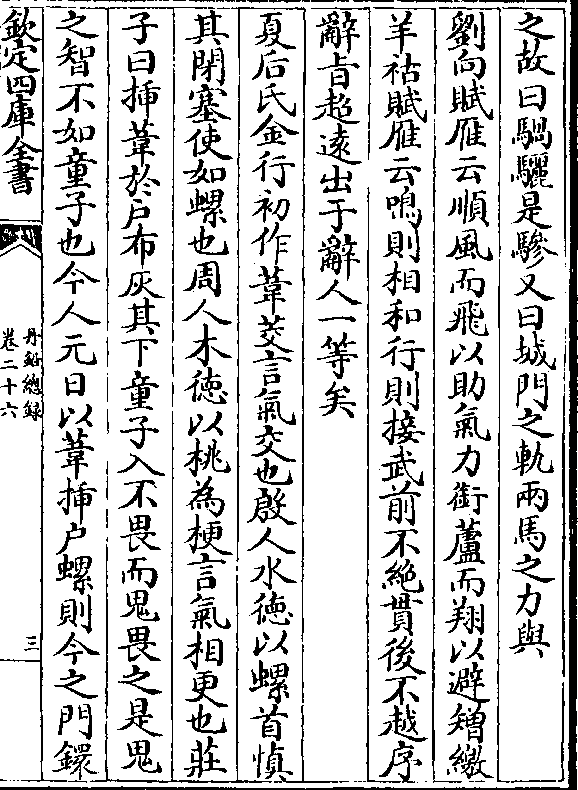 之故曰騧驪是驂又曰城門之軌兩馬之力與
劉向賦雁云順風而飛以助氣力銜蘆而翔以避矰繳
羊祜賦雁云鳴則相和行則接武前不絶貫後不越序
辭旨超遠出于辭人一等矣
夏后氏金行初作葦茭言氣交也殷人水德以螺首慎
其閉塞使如螺也周人木德以桃為梗言氣相更也莊
子曰揷葦於户布灰其下童子入不畏而鬼畏之是鬼
之智不如童子也今人元日以葦揷户螺則今之門鐶
欽定四庫全書
丹鉛總錄
卷二十六
三